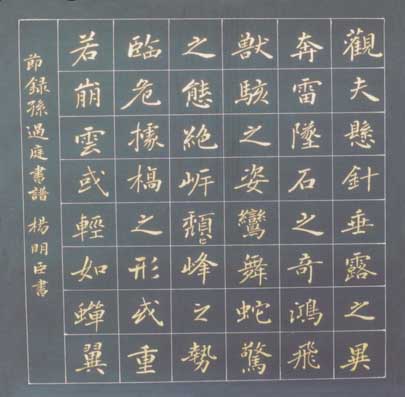 觀夫懸針垂露之異
奔雷墜石之奇鴻飛
獸駭之姿鸞舞蛇驚
之態絕岸頹峰之勢
臨危據槁之形或重
若崩雲或輕如蟬翼
節錄孫過庭書譜 楊明臣書